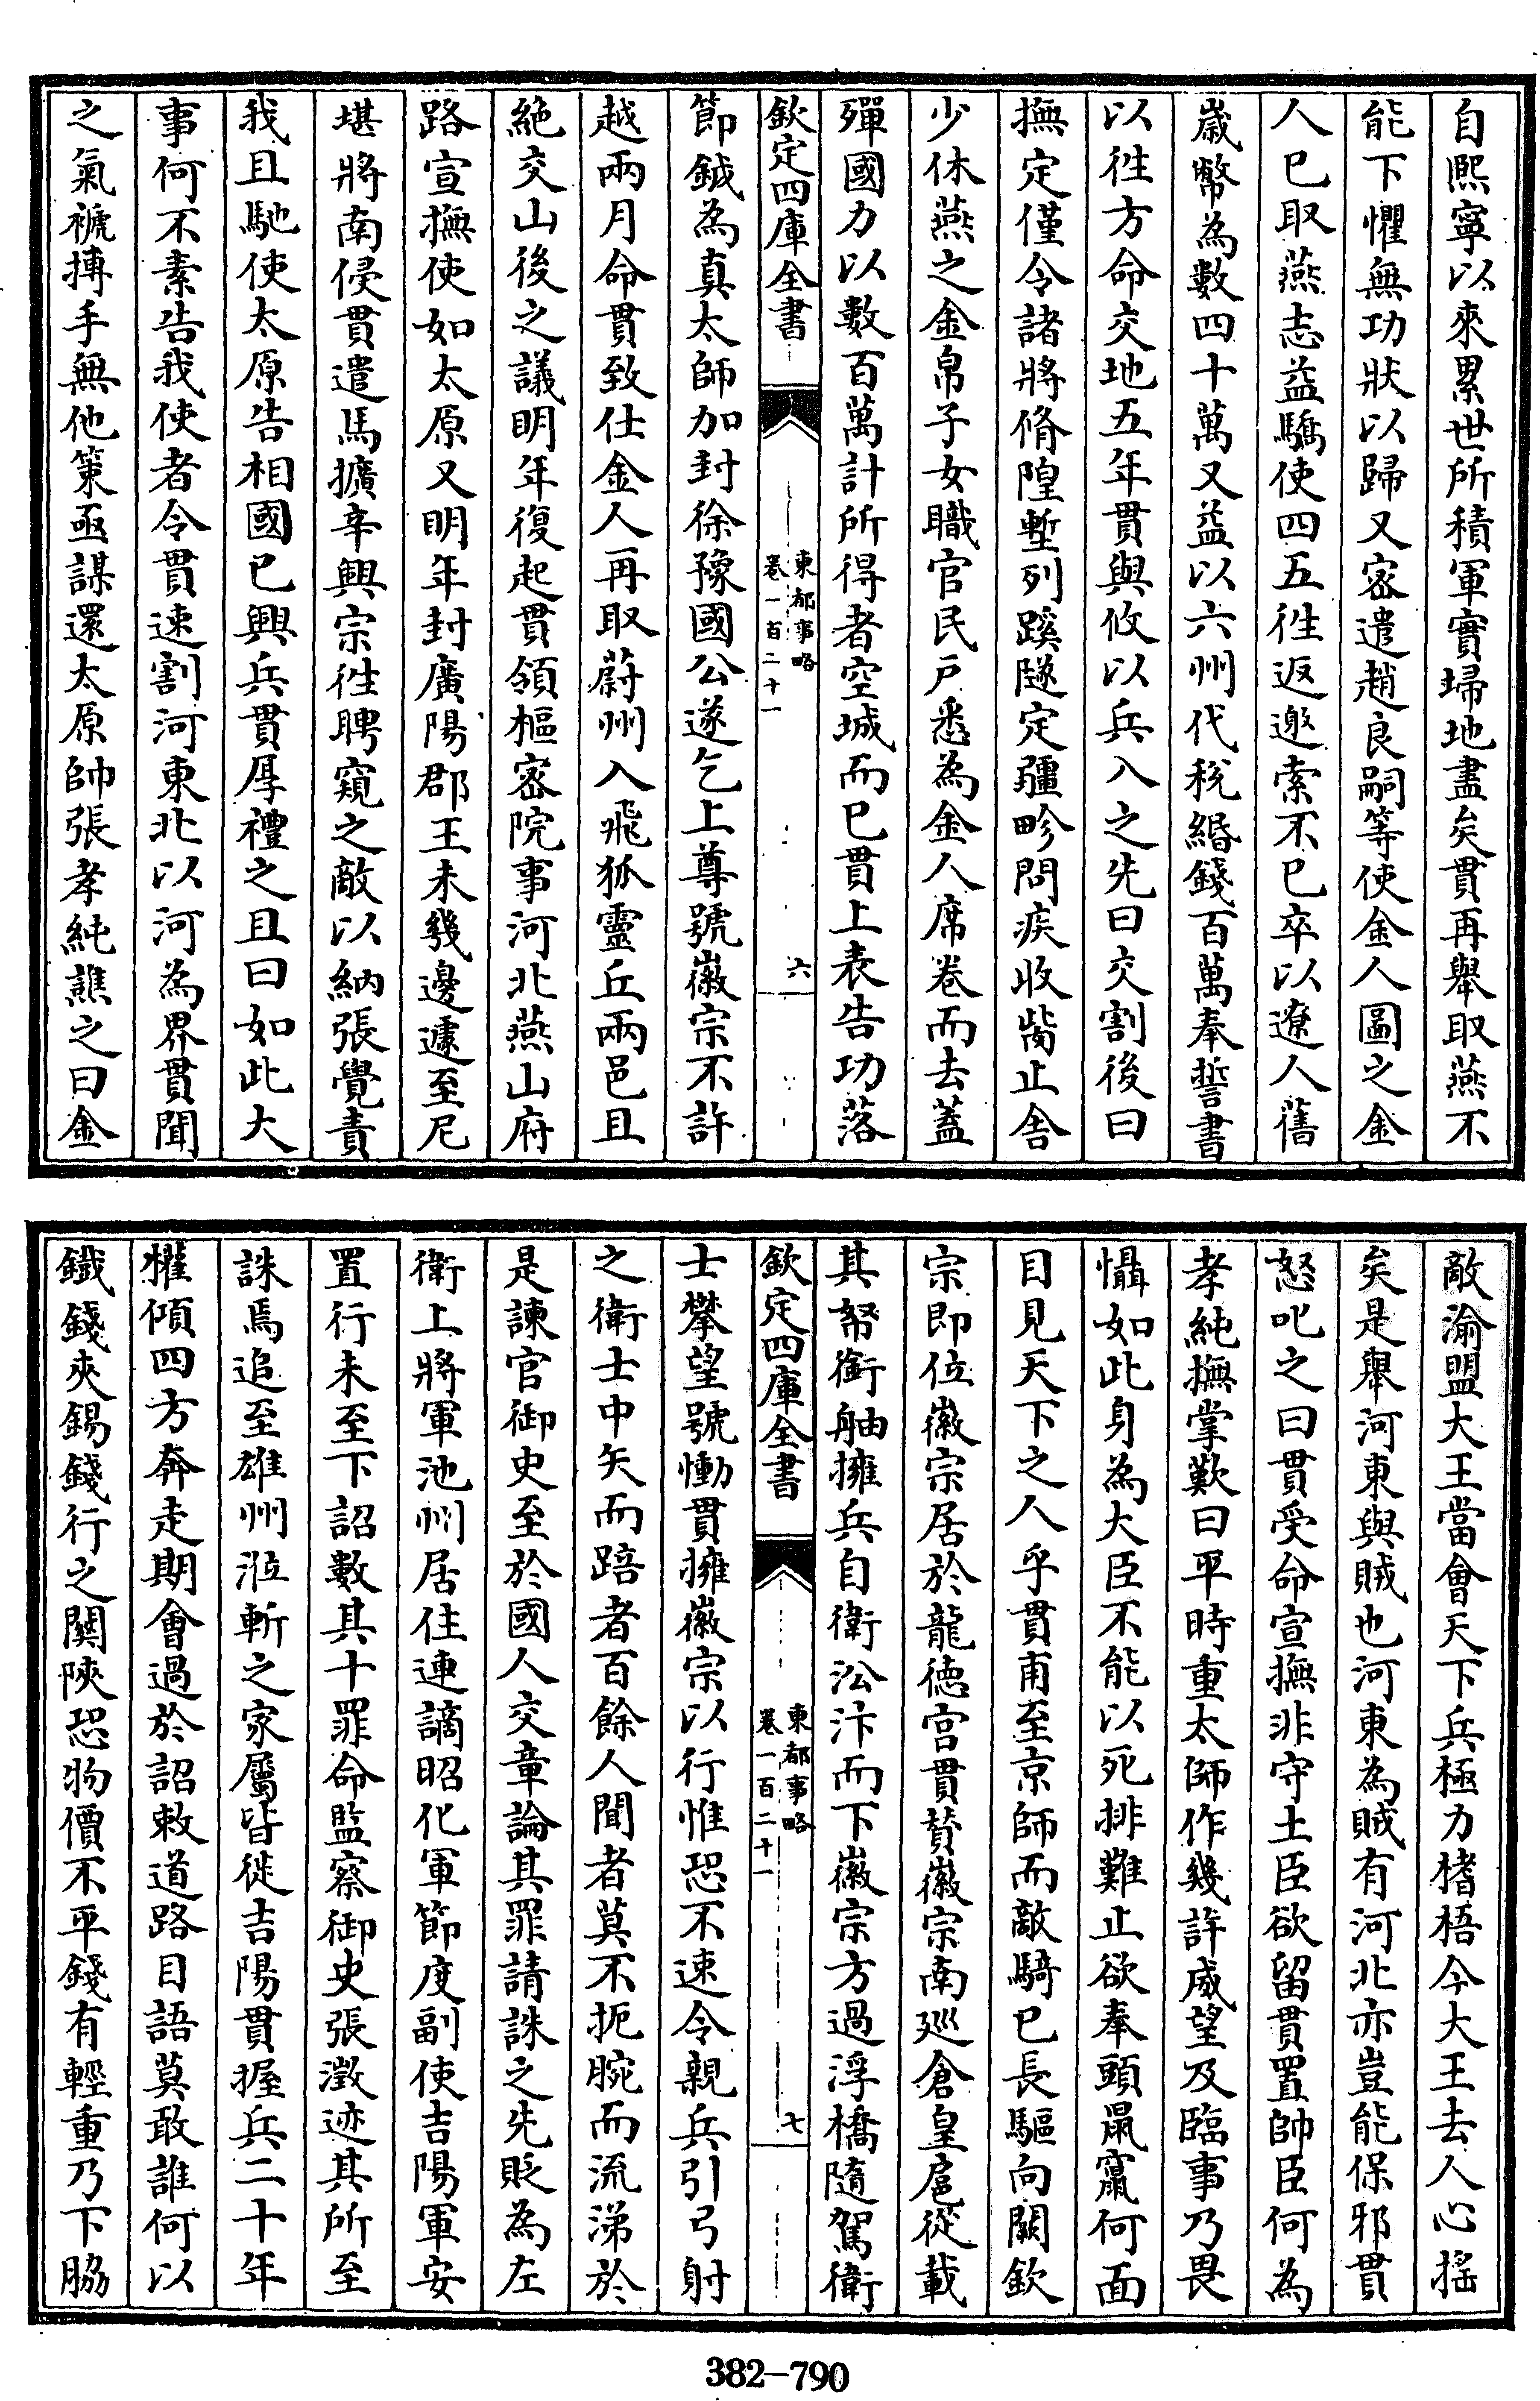 自熙寧以來累世所積軍實埽地盡矣貫再舉取燕不
能下懼無功狀以歸又宻遣趙良嗣等使金人圖之金
人已取燕志益驕使四五徃返邀索不已卒以遼人舊
歲幣為數四十萬又益以六州代稅緡錢百萬奉誓書
以徃方命交地五年貫與攸以兵入之先曰交割後曰
撫定僅令諸將脩隍塹列蹊隧定疆畛問疾收胔止舍
少休燕之金帛子女職官民戸悉為金人席卷而去蓋
殫國力以數百萬計所得者空城而已貫上表告功落
欽定四庫全書
東都事略
卷一百二十一
六
節鉞為真太師加封徐豫國公遂乞上尊號徽宗不許
越兩月命貫致仕金人再取蔚州入飛狐靈丘兩邑且
絶交山後之議明年復起貫領樞宻院事河北燕山府
路宣撫使如太原又明年封廣陽郡王未幾邊遽至尼
堪將南侵貫遣馬擴辛興宗徃聘窺之敵以納張覺責
我且馳使太原告相國已興兵貫厚禮之且曰如此大
事何不素告我使者令貫速割河東北以河為界貫聞
之氣褫搏手無他策亟謀還太原帥張孝純譙之曰金
敵渝盟大王當會天下兵極力榰梧今大王去人心揺
矣是舉河東與賊也河東為賊有河北亦豈能保邪貫
怒叱之曰貫受命宣撫非守土臣欲留貫置帥臣何為
孝純撫掌歎曰平時重太師作幾許威望及臨事乃畏
懾如此身為大臣不能以死排難止欲奉頭鼠竄何面
目見天下之人乎貫甫至京師而敵騎已長驅向闕欽
宗即位徽宗居於龍德宮貫贊徽宗南廵倉皇扈從載
其帑銜舳擁兵自衛沿汴而下徽宗方過浮橋隨駕衛
欽定四庫全書
東都事略
卷一百二十一
七
士攀望號慟貫擁徽宗以行惟恐不速令親兵引弓射
之衛士中矢而踣者百餘人聞者莫不扼腕而流涕於
是諫官御史至於國人交章論其罪請誅之先貶為左
衛上將軍池州居住連謫昭化軍節度副使吉陽軍安
置行未至下詔數其十罪命監察御史張澂迹其所至
誅焉追至雄州涖斬之家屬皆徙吉陽貫握兵二十年
權傾四方奔走期會過於詔敕道路目語莫敢誰何以
鐵錢夾錫錢行之關陜恐物價不平錢有輕重乃下脇
382-790